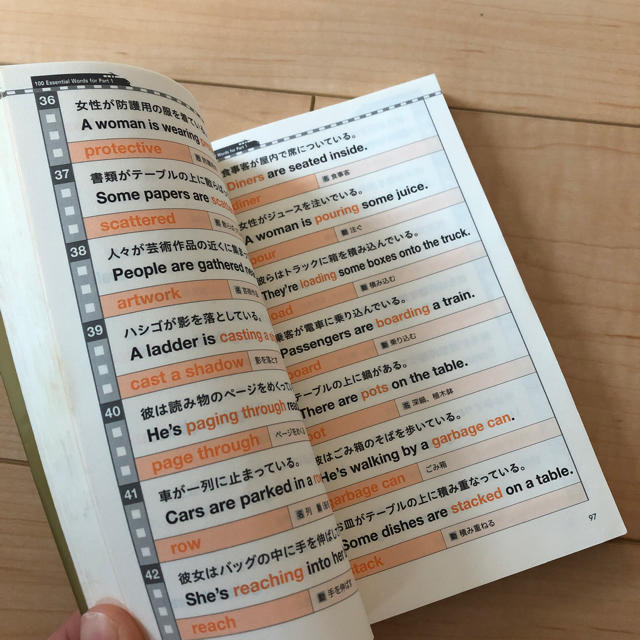 100 Essential Words for Part 1
36
女性が防護用の服を着てい
A woman is wearing
protective
37
書類がテーブルの上に散らば
Some papers are scatt
scattered
38
人々が芸術作品の近くに集
People are gathered ne
artwork
39
ハシゴが影を落としている。
A ladder is casting a
cast a shadow 影を落とす
40
彼は読み物のページをめくってい
He's paging through rea
page through ページをめくる
41
車が一列に止まっている。
Cars are parked in a ro
row 名 列
42
彼女はバッグの中に手を伸ばし
She's reaching into her
reach 動 手を伸ばす
Words for Part 1
食事客が屋内で席についている。
Diners are seated inside.
diner 名 食事客
女性がジュースを注いでいる。
A woman is pouring some juice.
pour 動 注ぐ
彼らはトラックに箱を積み込んでいる。
They're loading some boxes onto the truck.
oad 動 積み込む
乗客が電車に乗り込んでいる。
Passengers are boarding a train.
board 動 乗り込む
テーブルの上に鍋がある。
There are pots on the table.
pot 名 深鍋、植木鉢
彼はごみ箱のそばを歩いている。
He's walking by a garbage can.
garbage can ごみ箱
皿がテーブルの上に積み重なっている。
Some dishes are stacked on a table.
tack 動 積み重ねる
97